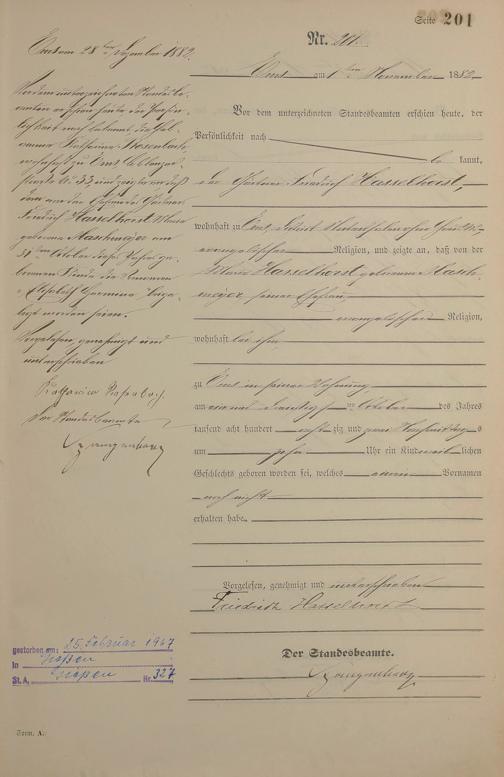 Seite 201
Nr. 201.
Ems am 1ten November 1882
Vor dem unterzeichneten Standesbeamten erschien heute, der
Persönlichkeit nach
be kannt,
der Gärtner Friedrich Hasselhorst,
wohnhaft zu Ems,
evangelischer Religion, und zeigte an, daß von der
Maria Hasselhorst geborenen Masch-
meyer seiner Ehefrau
evangelischer Religion,
wohnhaft bei ihm
zu Ems in seiner Wohnung
am ein und dreißigsten October des Jahres
tausend acht hundert achtzig und zwei Vormittags
um zehn Uhr ein Kind weiblichen
Geschlechts geboren worden sei, welches einen Vornamen
noch nicht
erhalten habe.
Vorgelesen, genehmigt und unterschrieben
Friedrich Hasselhorst
Der Standesbeamte.
Ems am 28ten Dezember 1882.
Vor dem unterzeichneten Standesbe-
amten erschien heute, der Persön-
lichkeit nach bekannt, die Heb-
amme Katharina
wohnhaft zu Ems Coblenzer-
straße Nr. 33, und zeigte an, daß
dem von der Ehefrau des Gärtners
Friedrich Hasselhorst, Maria
geborene Maschmeyer am
31ten October dieses Jahres ge-
borenen Kinde die Vornamen
Elisabeth Hermine beige-
legt worden seien.
Vorgelesen, genehmigt und
unterschrieben
Der Standesbeamte
gestorben am: 25. Februar 1967
in Gießen
St. A. Gießen Nr. 327
Form. A.